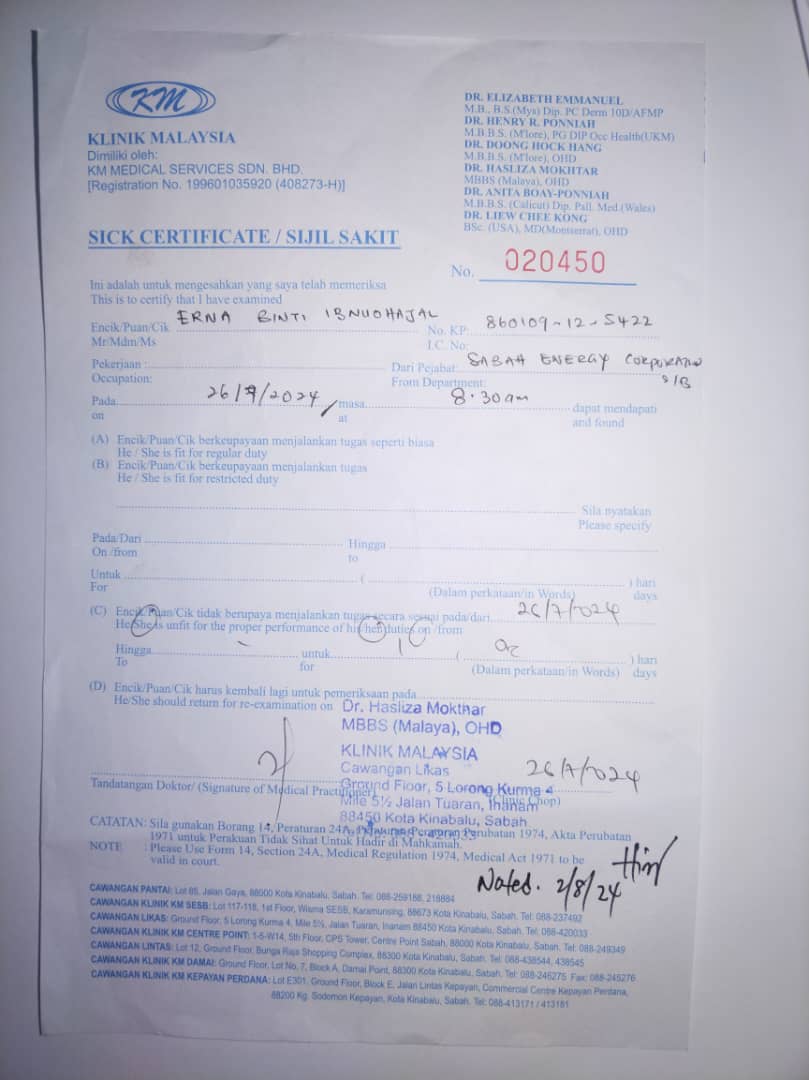 KM
KLINIK MALAYSIA
Dimiliki oleh:
KM MEDICAL SERVICES SDN. BHD.
[Registration No. 199601035920 (408273-H)]
DR. ELIZABETH EMMANUEL
M.B., B.S.(Mys) Dip. PC Derm 10D/AFMP
DR. HENRY R. PONNIAH
M.B.B.S. (M'lore), PG DIP Occ Health(UKM)
DR. DOONG HOCK HANG
M.B.B.S. (M'lore), OHD
DR. HASLIZA MOKHTAR
MBBS (Malaya), OHD
DR. ANITA BOAY-PONNIAH
M.B.B.S. (Calicut) Dip. Pall. Med.(Wales)
DR. LIEW CHEE KONG
BSc. (USA), MD(Montserrat), OHD
SICK CERTIFICATE / SIJIL SAKIT
No. 020450
Ini adalah untuk mengesahkan yang saya telah memeriksa
This is to certify that I have examined
Encik/Puan/Cik ERNA BINTI IBNUOHAJAL No. KP: 860109-12-5422
Mr/Mdm/Ms I.C. No:
Pekerjaan : Dari Pejabat: SABAH ENERGY CORPORATION
Occupation: From Department: S/B
Pada 26/7/2024 masa 8.30am dapat mendapati
on at and found
(A) Encik/Puan/Cik berkeupayaan menjalankan tugas seperti biasa
He / She is fit for regular duty
(B) Encik/Puan/Cik berkeupayaan menjalankan tugas
He / She is fit for restricted duty
Sila nyatakan
Please specify
Pada/Dari Hingga
On /from to
Untuk ( ) hari
For (Dalam perkataan/in Words) days
(C) Encik/Puan/Cik tidak berupaya menjalankan tugas secara sesuai pada/dari 26/7/2024
He/She is unfit for the proper performance of his/her duties on /from
Hingga - untuk 1 ( ) hari
To for (Dalam perkataan/in Words) days
(D) Encik/Puan/Cik harus kembali lagi untuk pemeriksaan pada
He/She should return for re-examination on
Dr. Hasliza Mokthar
MBBS (Malaya), OHD
KLINIK MALAYSIA
Cawangan Likas
Ground Floor, 5 Lorong Kurma 4
Mile 5½ Jalan Tuaran, Inanam
88450 Kota Kinabalu, Sabah
26/7/2024
Tandatangan Doktor/ (Signature of Medical Practitioner) (Clinic Chop)
CATATAN: Sila gunakan Borang 14, Peraturan 24A, Peraturan Perubatan 1974, Akta Perubatan
1971 untuk Perakuan Tidak Sihat Untuk Hadir di Mahkamah.
NOTE : Please Use Form 14, Section 24A, Medical Regulation 1974, Medical Act 1971 to be
valid in court.
Noted. 2/8/24
CAWANGAN PANTAI: Lot 65, Jalan Gaya, 88000 Kota Kinabalu, Sabah. Tel: 088-259188, 218884
CAWANGAN KLINIK KM SESB: Lot 117-118, 1st Floor, Wisma SESB, Karamunsing, 88673 Kota Kinabalu, Sabah. Tel: 088-237492
CAWANGAN LIKAS: Ground Floor, 5 Lorong Kurma 4, Mile 5½, Jalan Tuaran, Inanam 88450 Kota Kinabalu, Sabah. Tel: 088-420033
CAWANGAN KLINIK KM CENTRE POINT: 1-5-W14, 5th Floor, CPS Tower, Centre Point Sabah, 88000 Kota Kinabalu, Sabah. Tel: 088-249349
CAWANGAN LINTAS: Lot 12, Ground Floor, Bunga Raja Shopping Complex, 88300 Kota Kinabalu, Sabah. Tel: 088-438544, 438545
CAWANGAN KLINIK KM DAMAI: Ground Floor, Lot No. 7, Block A, Damai Point, 88300 Kota Kinabalu, Sabah. Tel: 088-245275 Fax: 088-245276
CAWANGAN KLINIK KM KEPAYAN PERDANA: Lot E301, Ground Floor, Block E, Jalan Lintas Kepayan, Commercial Centre Kepayan Perdana,
88200 Kg. Sodomon Kepayan, Kota Kinabalu, Sabah. Tel: 088-413171 / 413181